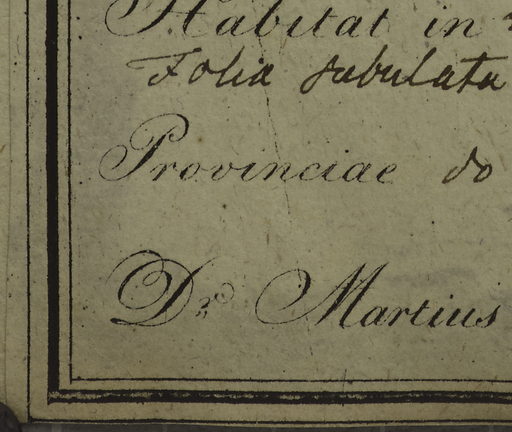 Habitat in
Folia subulata
Provinciae do
Dr. Martius